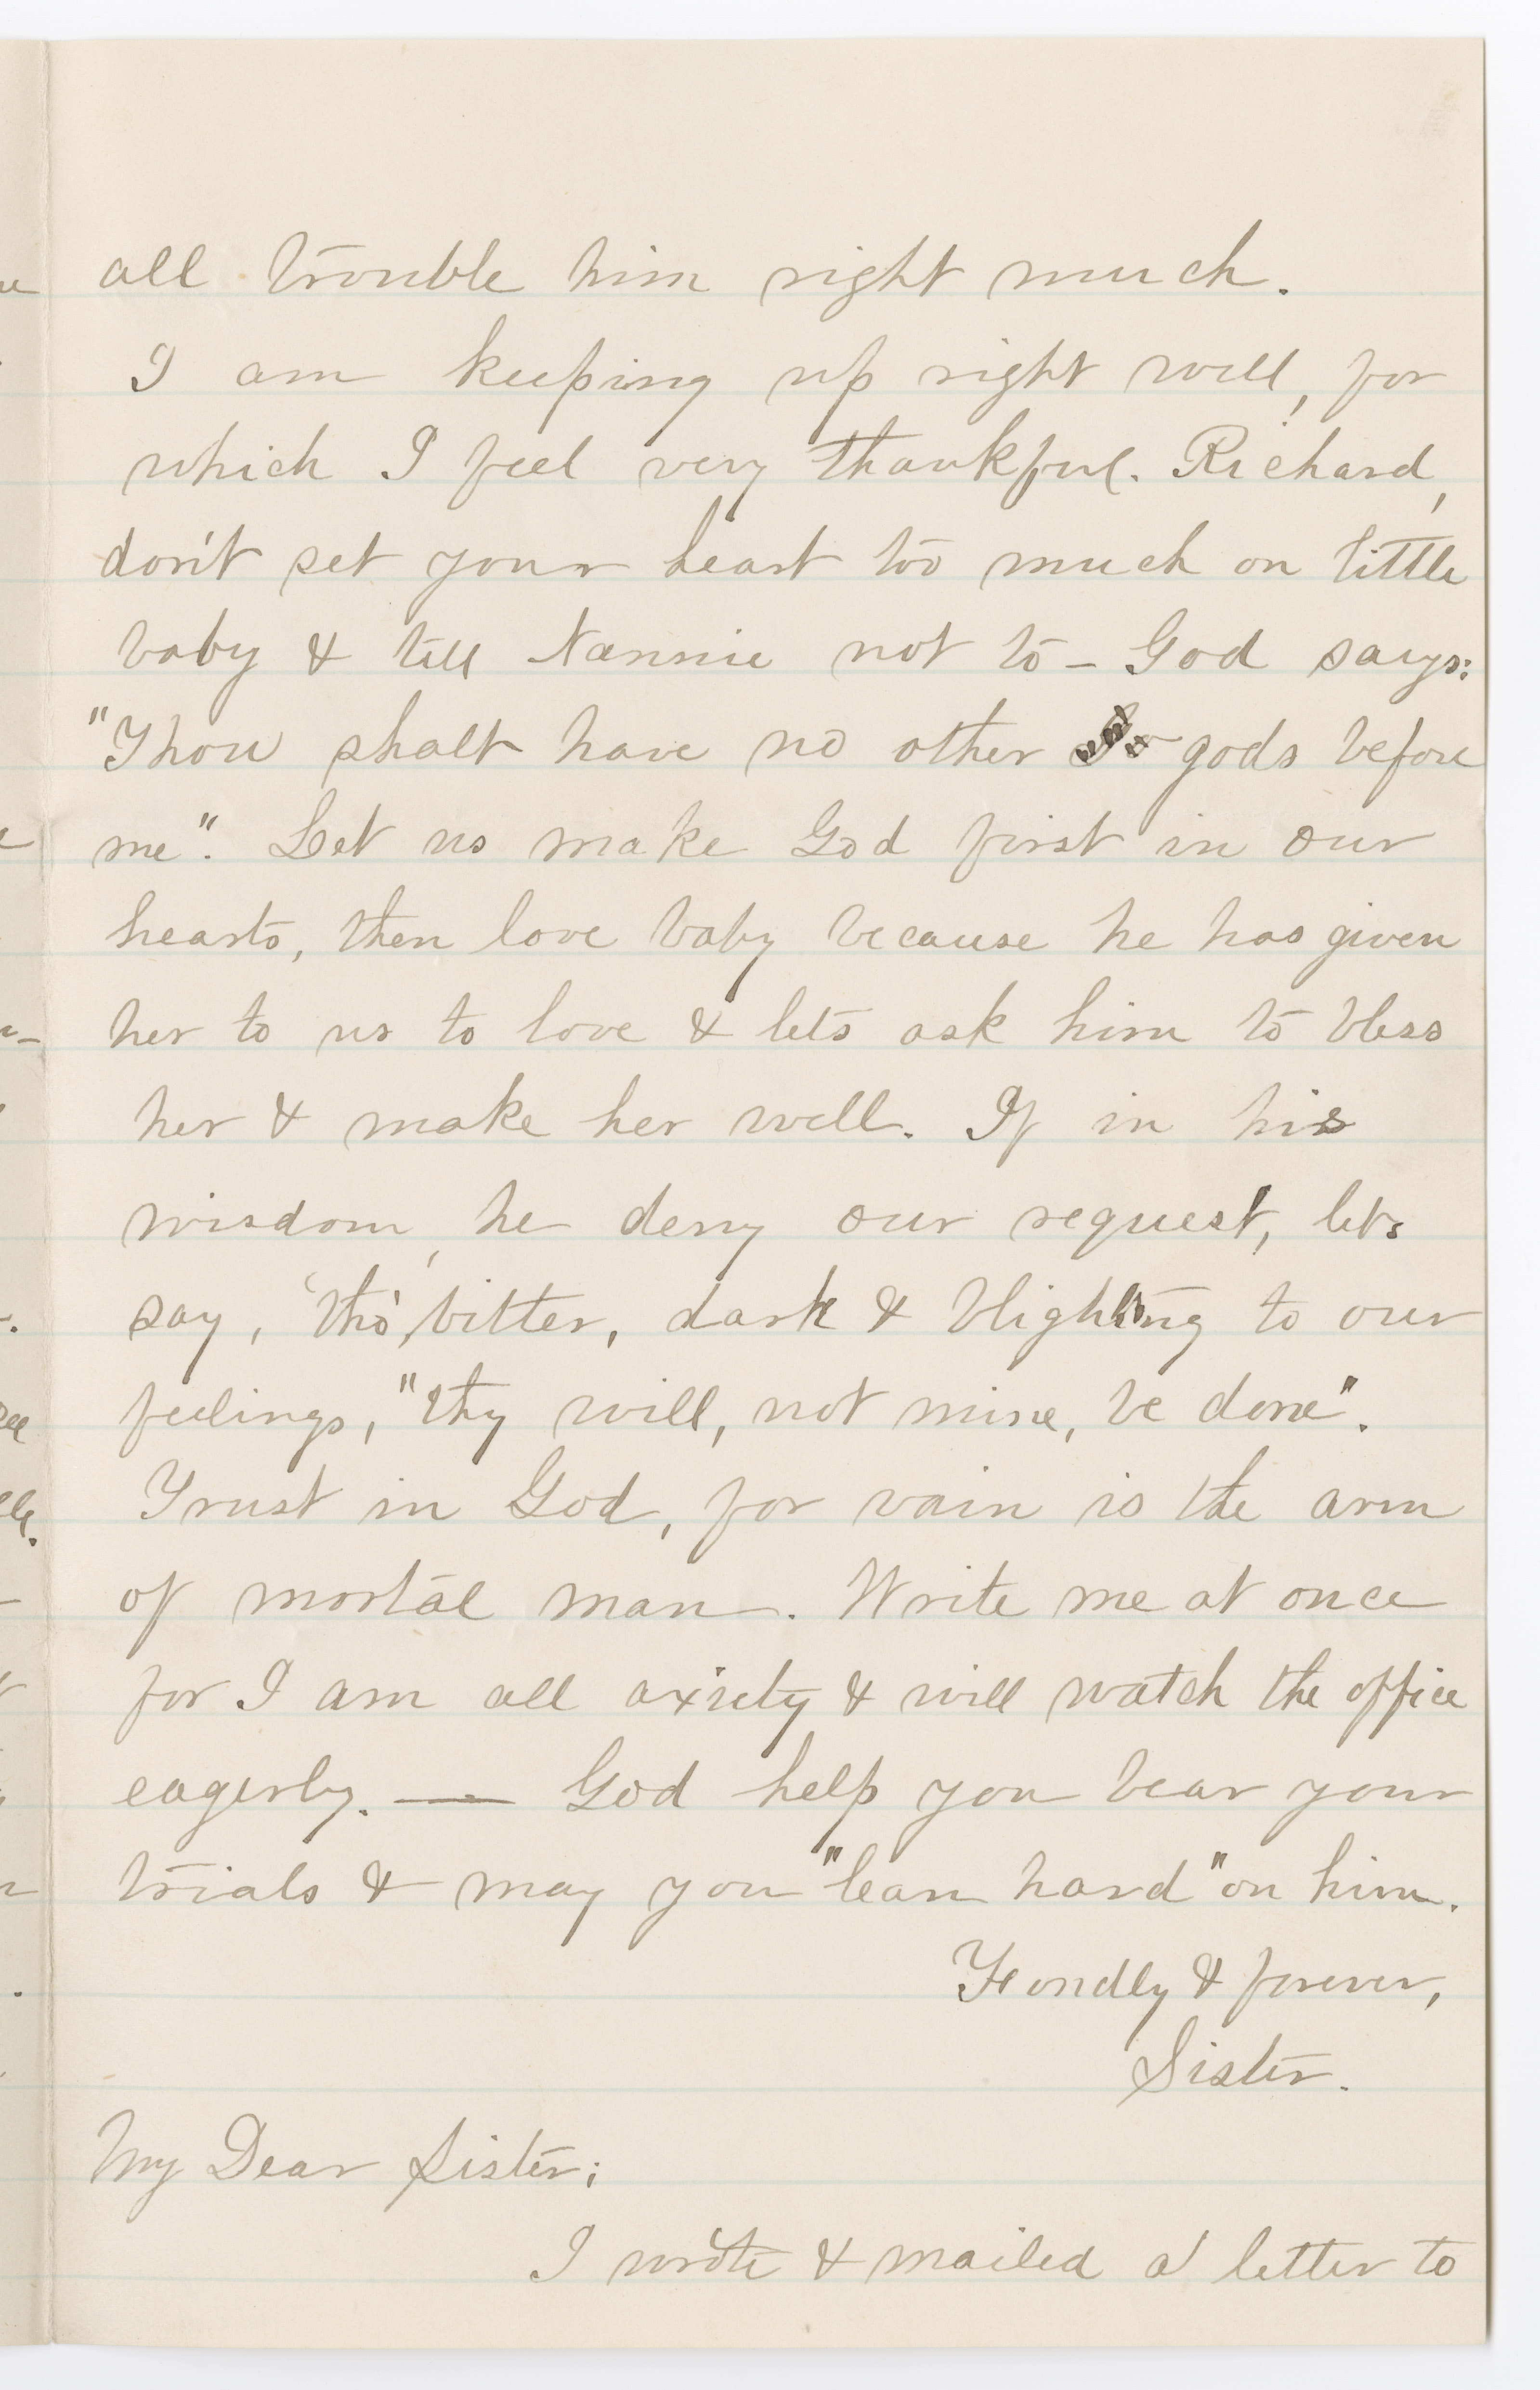 all trouble him right much.
I am keeping up right well, for
which I feel very thankful. Richard,
don't set your heart too much on little
baby & tell Nannie not to - God says:
"Thou shalt have no other gods before
me". Let us make God first in our
hearts, then love baby because he has given
her to us to love & lets ask him to bless
her & make her well. If in his
wisdom, he deny our request, lets
say, 'tho' bitter, dark & blighting to our
feelings, "thy will, not mine, be done".
Trust in God, for vain is the arm
of mortal man. Write me at once
for I am all axiety & will watch the office
eagerly. — God help you bear your
trials & may you "lean hard" on him.
Fondly & forever,
Sister.
My Dear Sister;
I wrote & mailed a letter to